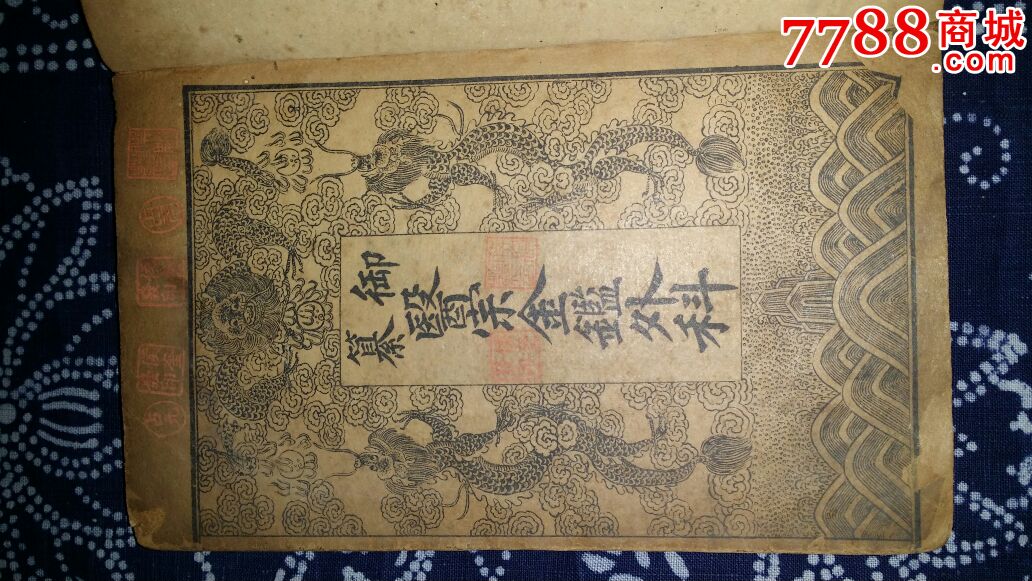 御纂
醫宗金鑑外科
7788商城
.com